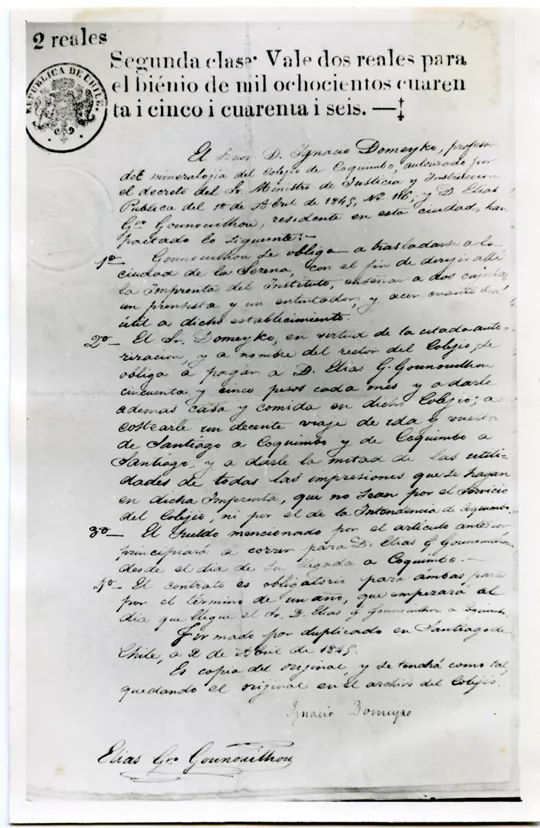 2 reales
Segunda clase. Vale dos reales para
el biénio de mil ochocientos cuaren
ta i cinco i cuarenta i seis. —
REPUBLICA DE CHILE
El Señor D. Ignacio Domeyko, profesor
de mineralojia del Colejio de Coquimbo, autorizado por
el decreto del Sr. Ministro de Justicia y Instruccion
Publica del 1º de Abril de 1845, Nº 116, y D. Elias
Gro Gounouilhou, residente en esta ciudad, han
pactado lo siguiente:-
1º Gounouilhou se obliga a trasladarse a la
ciudad de la Serena, con el fin de dirijir allí
la Imprenta del Instituto, enseñar a dos cajistas,
un prensista y un entintador, y acer cuanto sea
útil a dicho establecimiento.
2º El Sr. Domeyko, en virtud de la citada auto-
rizacion, y a nombre del rector del Colejio, se
obliga a pagar a D. Elias G. Gounouilhou
cincuenta y cinco pesos cada mes y a darle
ademas casa y comida en dicho Colejio; a
costearle un decente viaje de ida y vuelta
de Santiago a Coquimbo y de Coquimbo a
Santiago, y a darle la mitad de las utili-
dades de todas las impresiones que se hagan
en dicha Imprenta, que no sean por el servicio
del Colejio, ni por el de la Intendencia de Coquimbo.
3º El sueldo mencionado por el articulo anterior
principiará a correr para D. Elias G Gounouilhou
desde el dia de su llegada a Coquimbo.-
4º El contrato es obligatorio para ambas partes
por el término de un año, que empezará al
dia que llegue el Sr. D. Elias G Gounouilhou a Coquimbo
Firmado por duplicado en Santiago de
Chile, a 2 de Abril de 1845.
Es copia del orijinal, y se tendrá como tal,
quedando el orijinal en el archivo del Colejio.
Ignacio Domeyko
Elias Gro Gounouilhou